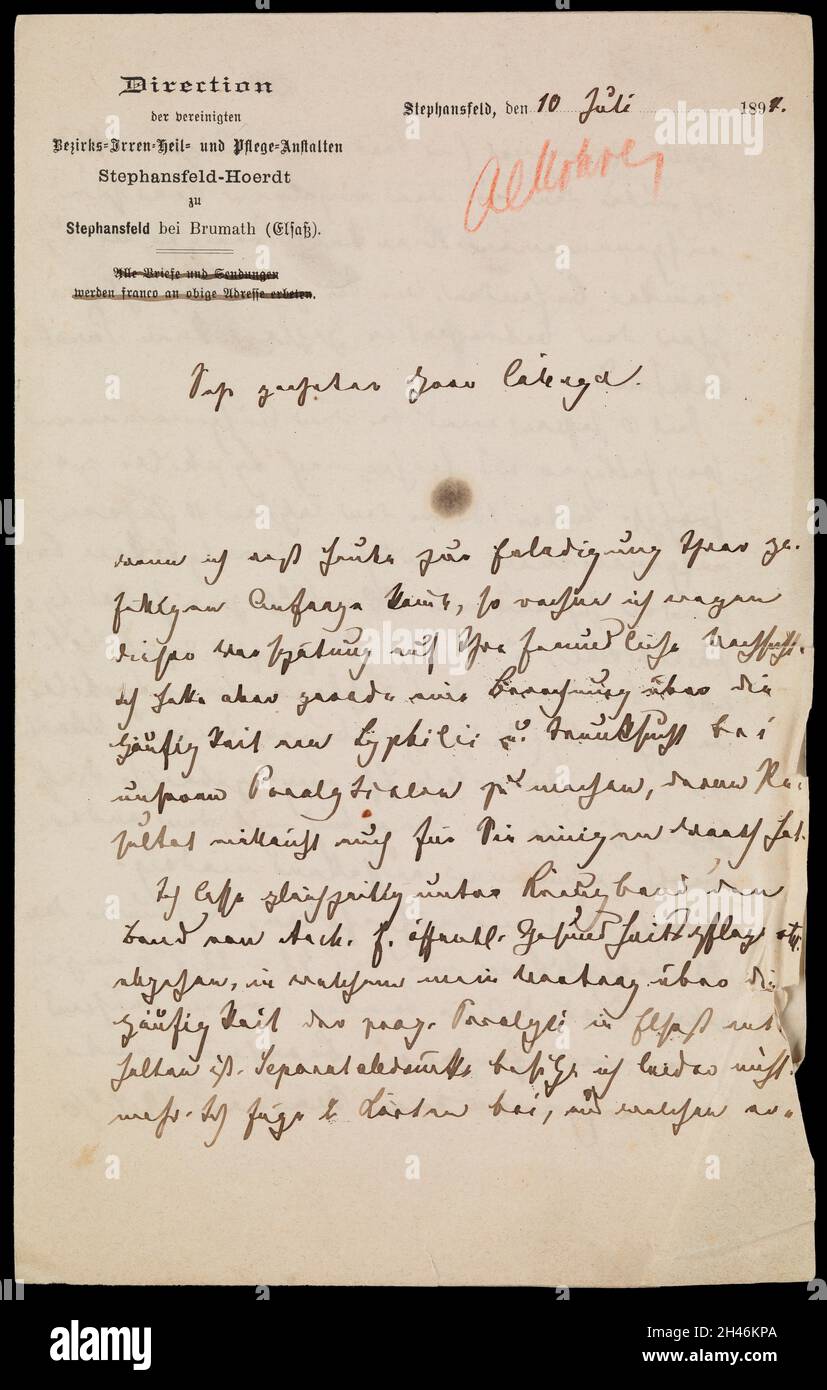 Direction
der vereinigten
Bezirks-Irren-Heil- und Pflege-Anstalten
Stephansfeld-Hoerdt
zu
Stephansfeld bei Brumath (Elsaß).
Alle Briefe und Sendungen
werden franco an obige Adresse erbeten.
Stephansfeld, den 10 Juli 189
Alkohol
Sehr geehrter Herr
wenn ich erst heute zur Erledigung Ihrer ge-
fälligen Anfrage komme, so rechne ich wegen
dieser Verspätung auf Ihre freundliche Nachsicht.
Ich hatte aber gerade eine Berechnung über die
Häufigkeit von Syphilis u. Trunksucht bei
unseren Paralytikern zu machen, deren Re-
sultat vielleicht auch für Sie einigen Werth hat.
Ich lasse gleichzeitig unter Kreuzband den
Band von Arch. f. öffentl. Gesundheitspflege
abgehen, in welchem mein Vortrag über die
Häufigkeit der progr. Paralyse in Elsaß ent-
halten ist. Separatabdrücke besitze ich leider nicht
mehr. Ich füge 2 Karten bei, aus welchen er-
alamy
Image ID: 2H46KPA
www.alamy.com